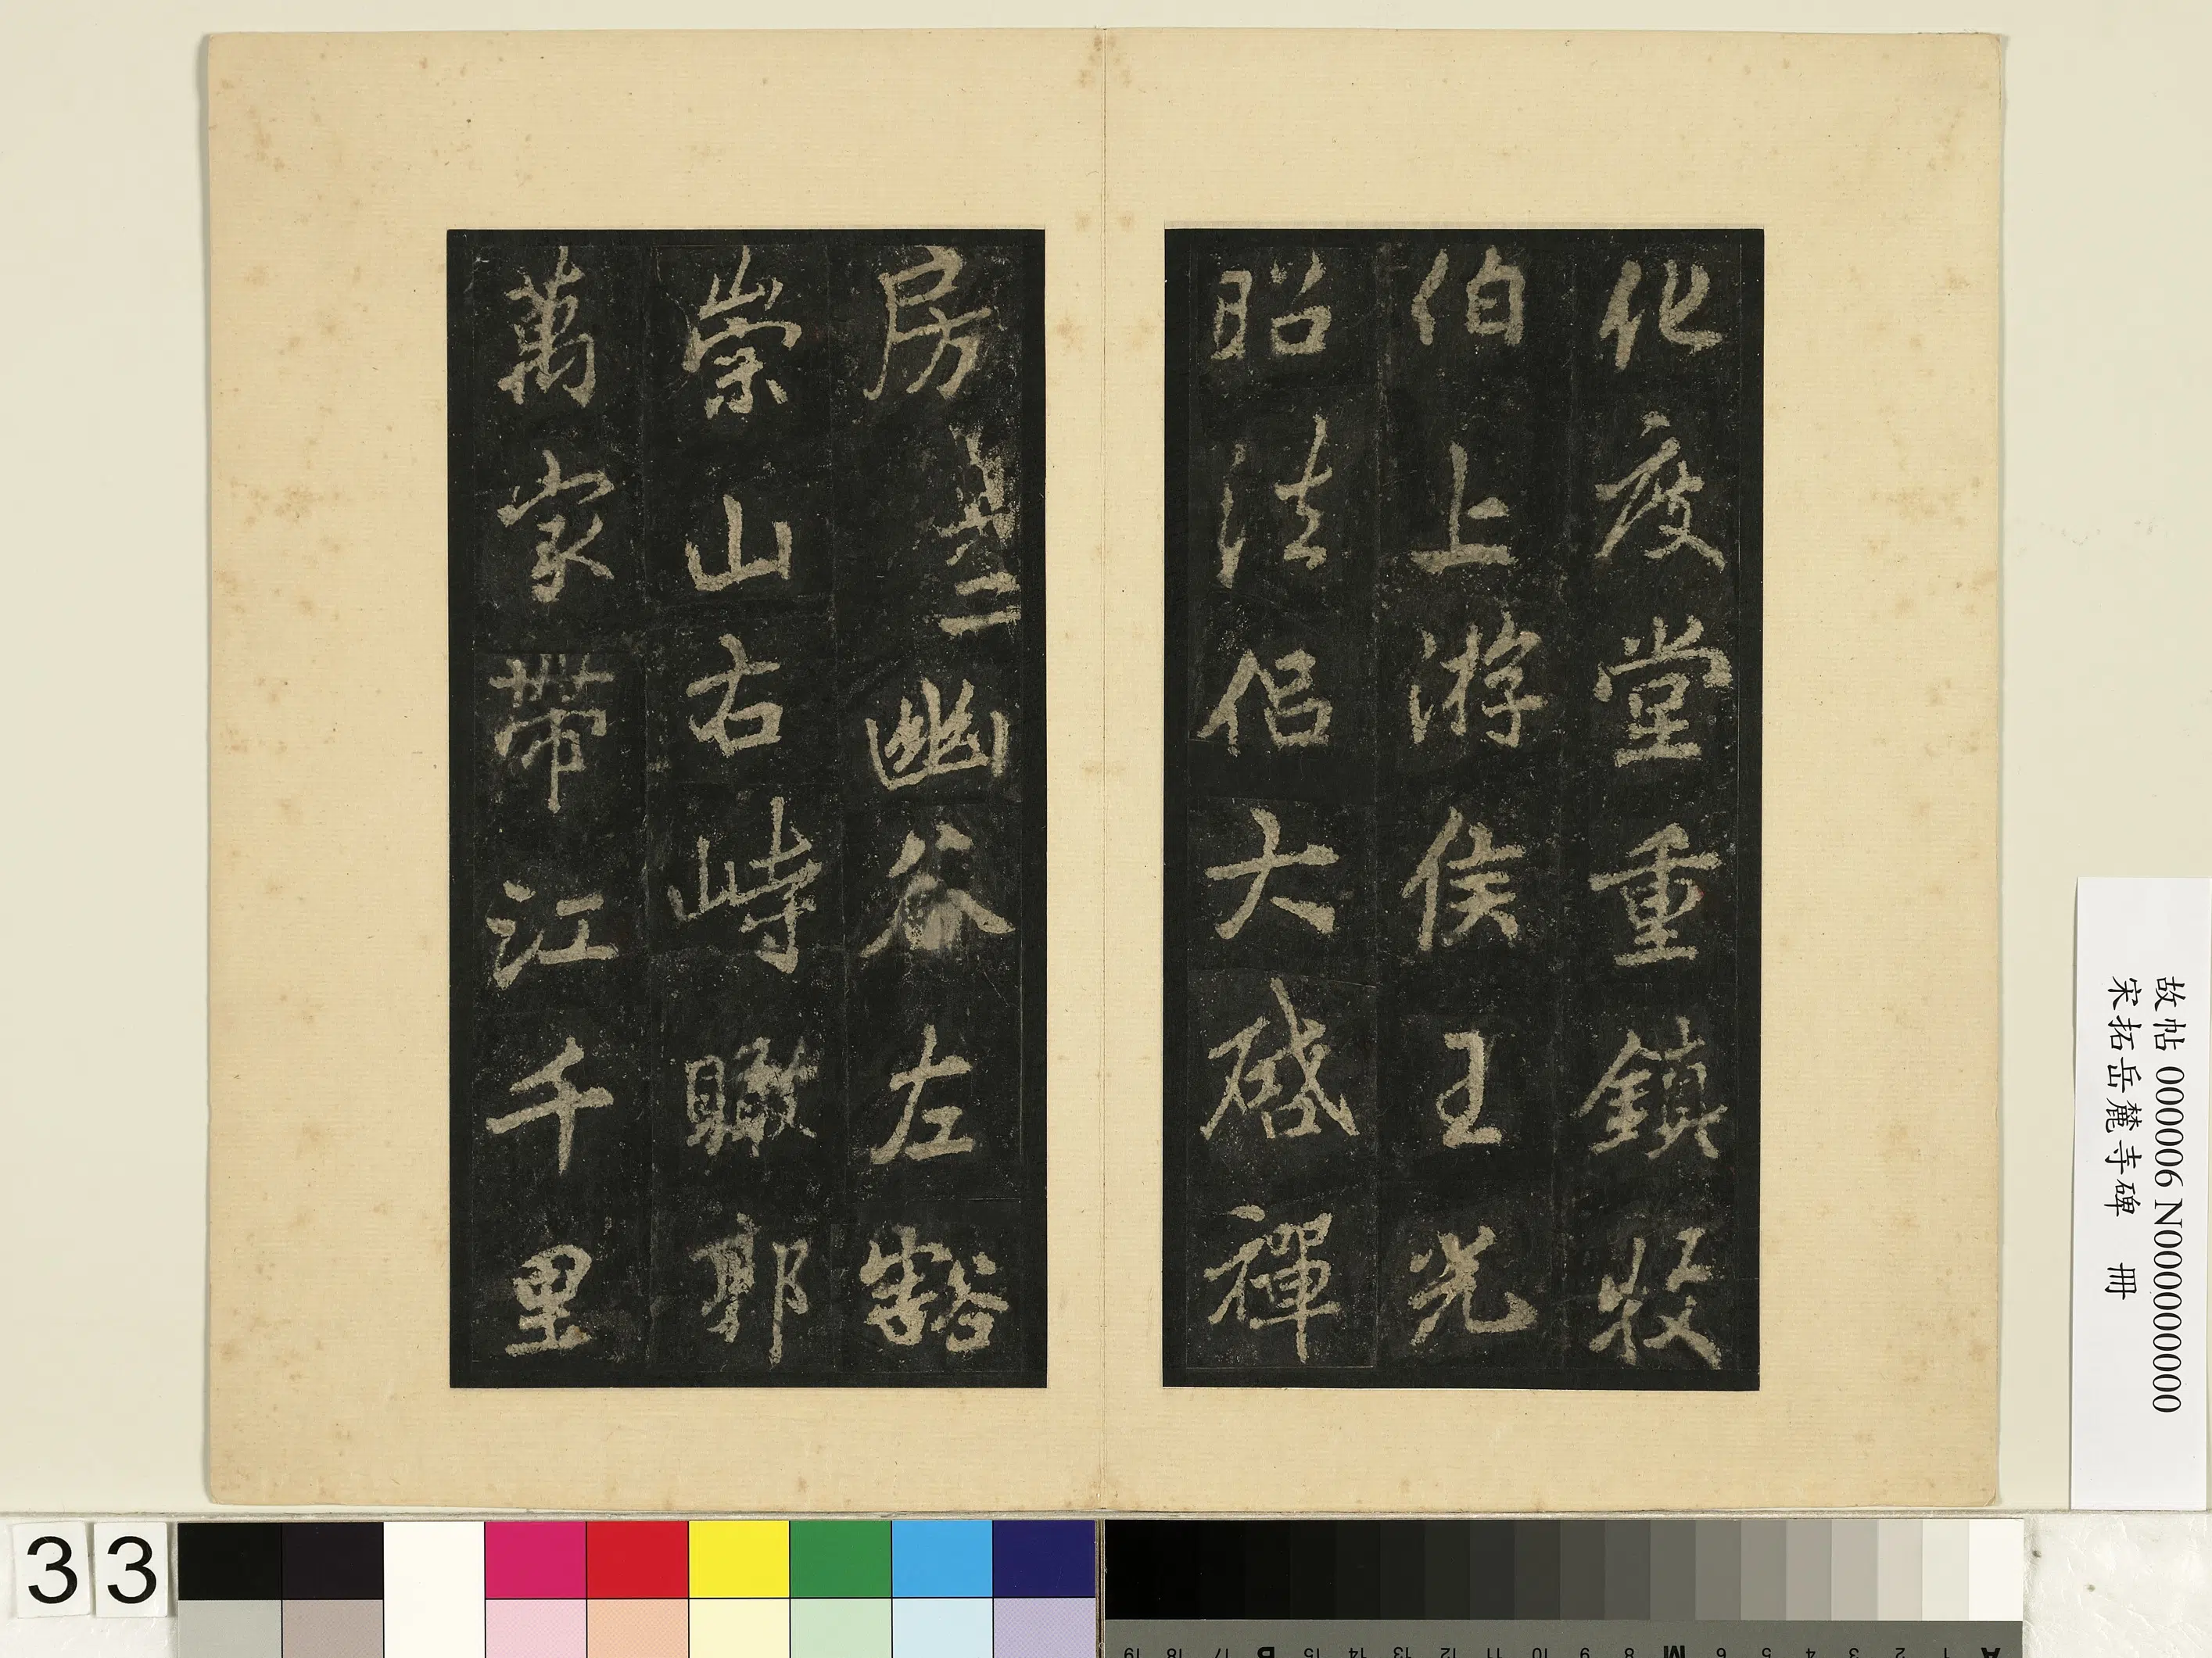 化度堂重鎮牧
伯上游侯王光
昭法侶大啓禪
房幽谷左豁
崇山右峙瞰郭
萬家帶江千里
故帖 000006 N000000000
宋拓岳麓寺碑 冊
33
A 1 2 3 4 5 6 M 8 9 10 11 12 13 14 15 B 17 18 19